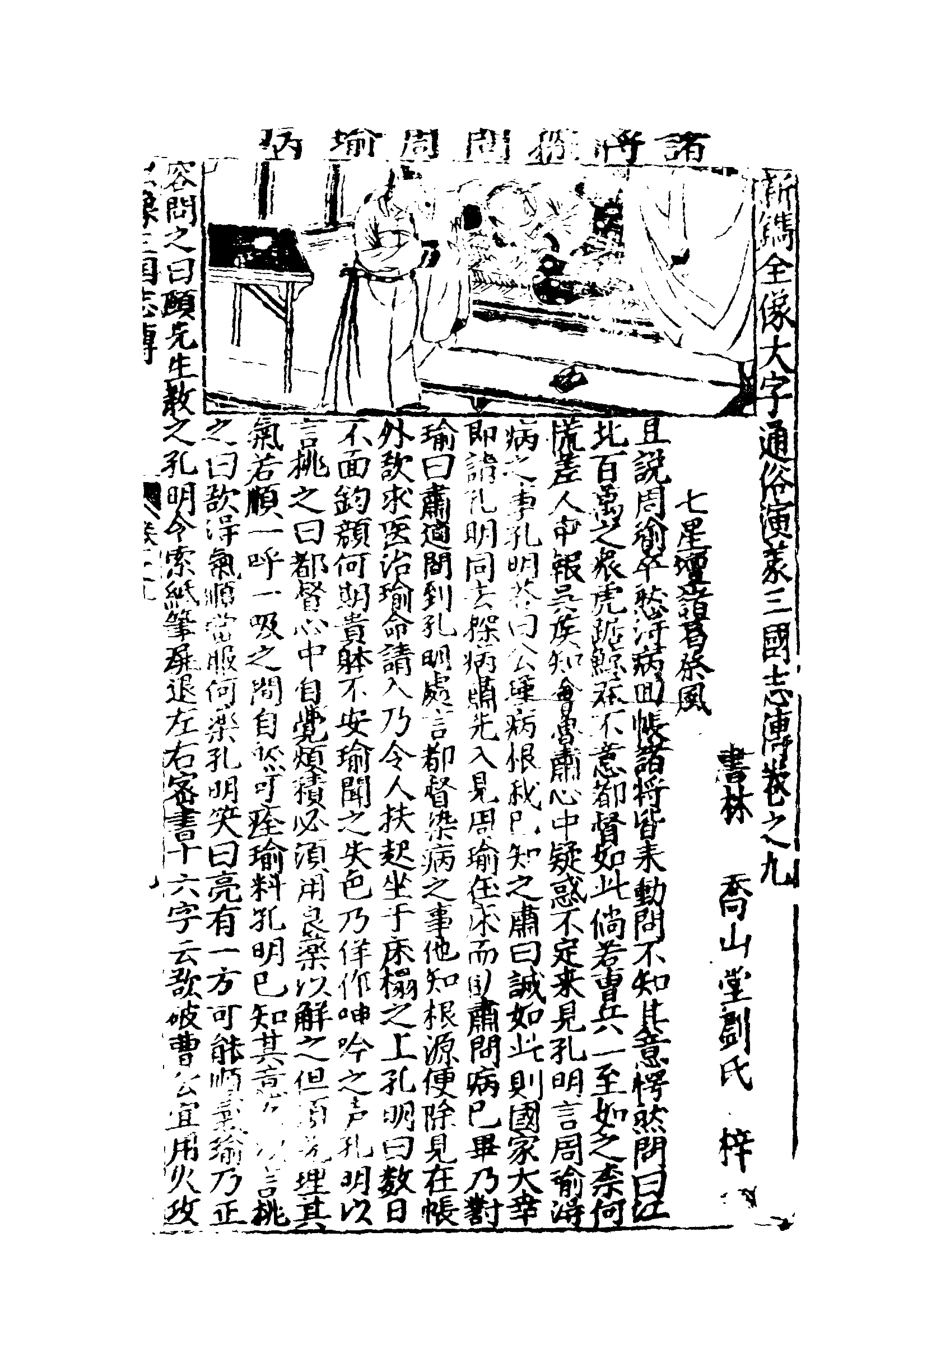 諸將探問周瑜病
新鐫全像大字通俗演義三國志傳卷之九
書林 喬山堂劉氏 梓
七星壇諸葛祭風
且說周瑜卒然得病回帳諸將皆来動問不知其意愕然問曰江
北百萬之衆虎踞鯨吞不意都督如此倘若曹兵一至如之奈何
慌差人申報吳侯知會魯肅心中疑惑不定来見孔明言周瑜淂
病之事孔明答曰公瑾病根我已知之肅曰誠如此則國家大幸
即請孔明同去探病肅先入見周瑜在床而卧肅問病已畢乃對
瑜曰肅適間到孔明處言都督染病之事他知根源便除見在帳
外欲求医治瑜命請入乃令人扶起坐于床榻之上孔明曰数日
不面鈞顏何期貴躰不安瑜聞之失色乃佯作呻吟之声孔明以
言桃之曰都督心中自覺煩積必須用良藥以解之但須先理其
氣若順一呼一吸之間自然可痊瑜料孔明已知其意以言桃
之曰欲淂氣順當服何藥孔明笑曰亮有一方可能順氣瑜乃正
容問之曰願先生教之孔明令索紙筆屏退左右密書十六字云欲破曹公宜用火攻
全像三国志傳 卷之九